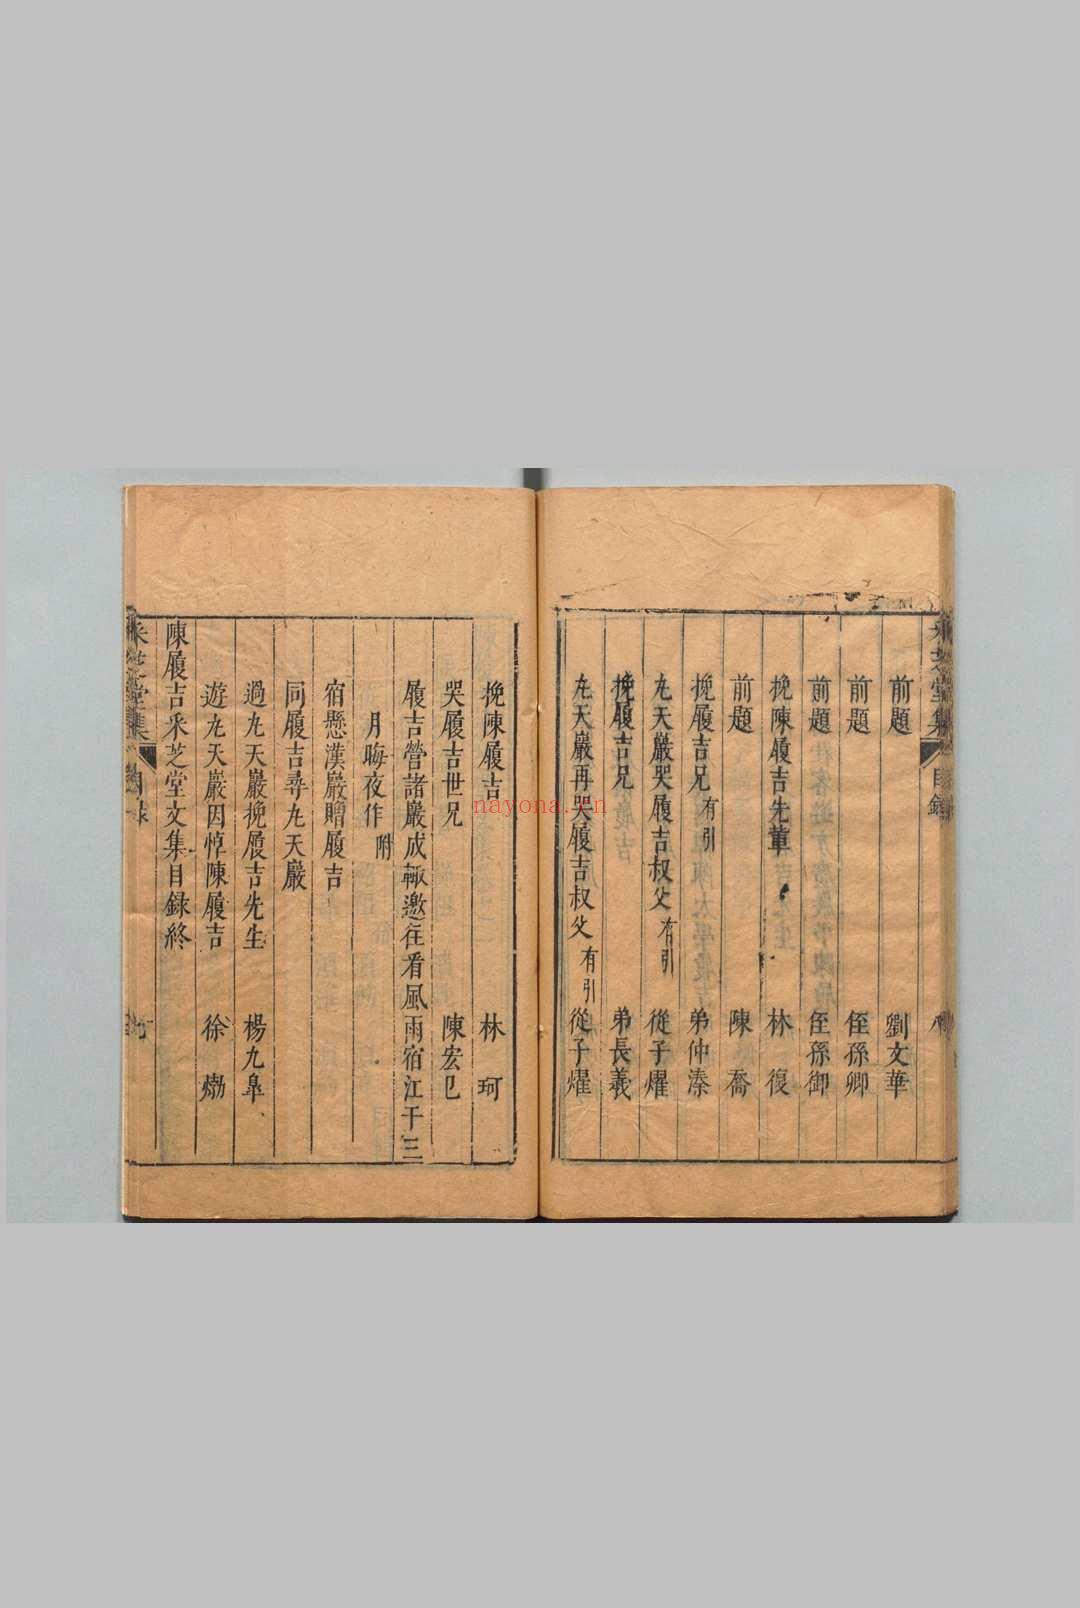 前題 劉文華
前題 侄孫卿
前題 侄孫御
挽陳履吉先輩 林復
前題 陳喬
挽履吉兄有引 弟仲溱
九天巖哭履吉叔父有引 從子燿
挽履吉兄 弟長義
九天巖再哭履吉叔父有引 從子燿
挽陳履吉 林珂
哭履吉世兄 陳宏已
履吉營諸巖成輙邀往看風雨宿江干三
月晦夜作附
宿懸漢巖贈履吉
同履吉尋九天巖
過九天巖挽履吉先生 楊九臯
遊九天巖因悼陳履吉 徐𤊹
陳履吉釆芝堂文集目録終
釆芝堂集 目録
nayona.cn